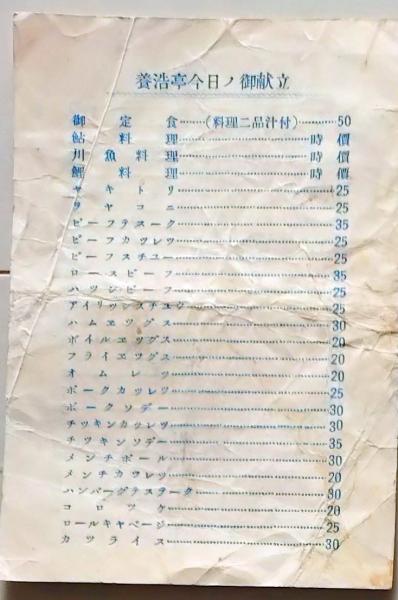 養浩亭今日ノ御献立
御定食……(料理二品汁付)………50
鮎料理………時價
川魚料理………時價
鯉料理………時價
ヤキトリ………25
オヤコニ………25
ビーフテスーク………35
ビーフカツレツ………25
ビーフスチユー………25
ロースビーフ………35
ハツシビーフ………25
アイリツシスチユウ………25
ハムエツグス………30
ボイルエツグス………20
フライエツグス………20
オムレツ………20
ポークカツレツ………25
ポークソテー………30
チツキンカツレツ………30
チツキンソテー………35
メンチボール………30
メンチカツレツ………20
ハンバーグテスターク………30
コロツケ………20
ロールキャベージ………25
カツライス………30